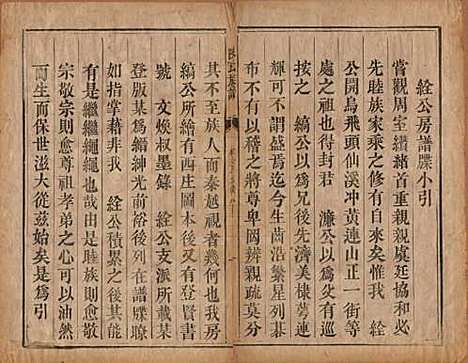 絟公房譜牒小引
嘗觀周室纘緒首重親親虞廷協和必
先睦族家乘之修有自來矣惟我 絟
公開烏飛頭仙溪冲黃連山正一街等
處之祖也得封君 濂公以為兄而有
縞公以為兄好後先濟美棣萼連
輝可不謂盛焉迄今生齒浩繁星列碁
布不有以稽之將尊卑罔辨親疏莫分
其不至族人而秦越視者何
縞公所繪有四庄圖本後又有登賢書
號 文煥叔墨錄 絟公支派所載某
登版某為縉紳光前裕後列在譜牒瞭
如指掌藉非我 絟公積累之後其能
有是繼繼繩繩也哉是睦族則愈敬
宗敬宗則愈尊祖孝弟之心可以油然
而生而保世滋大從茲始矣是為引